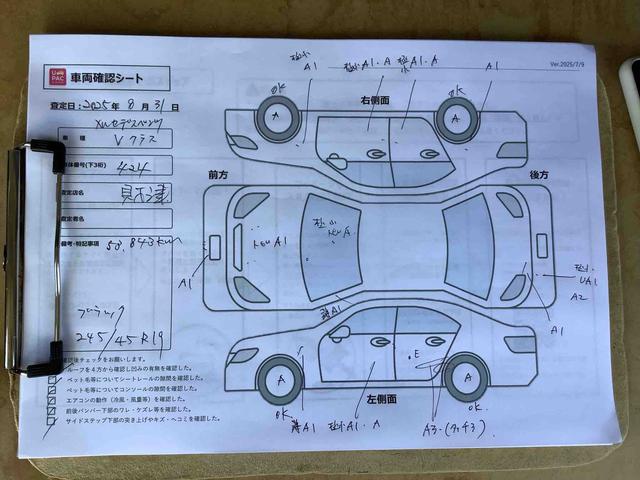 Ver.2025/7/9
UcarPAC 車両確認シート
査定日：2025年 8月 31日
車種 メルセデスベンツ Vクラス
車体番号(下3桁) 424
査定店名 貝津
査定者名
備考・特記事項 53,843km
ブラック
245/45R19
確認後チェックをお願いします。
ルーフを4方から確認し凹みの有無を確認した。
ペット毛等についてシートレールの隙間を確認した。
ペット毛等についてコンソールの隙間を確認した。
エアコンの動作（冷風・風量等）を確認した。
前後バンパー下部のワレ・ケズレ等を確認した。
サイドステップ下部の突き上げやキズ・ヘコミを確認した。
極小 A1
極小A1・A
極小A1・A
A1
OK
OK
右側面
A
A
前方
後方
A1
トビA1
極小 トビA
極小 UA1
A2
A1
薄A1
E
A
A
OK
OK
左側面
薄A1
極小A1・A
A3・(タッチ3)